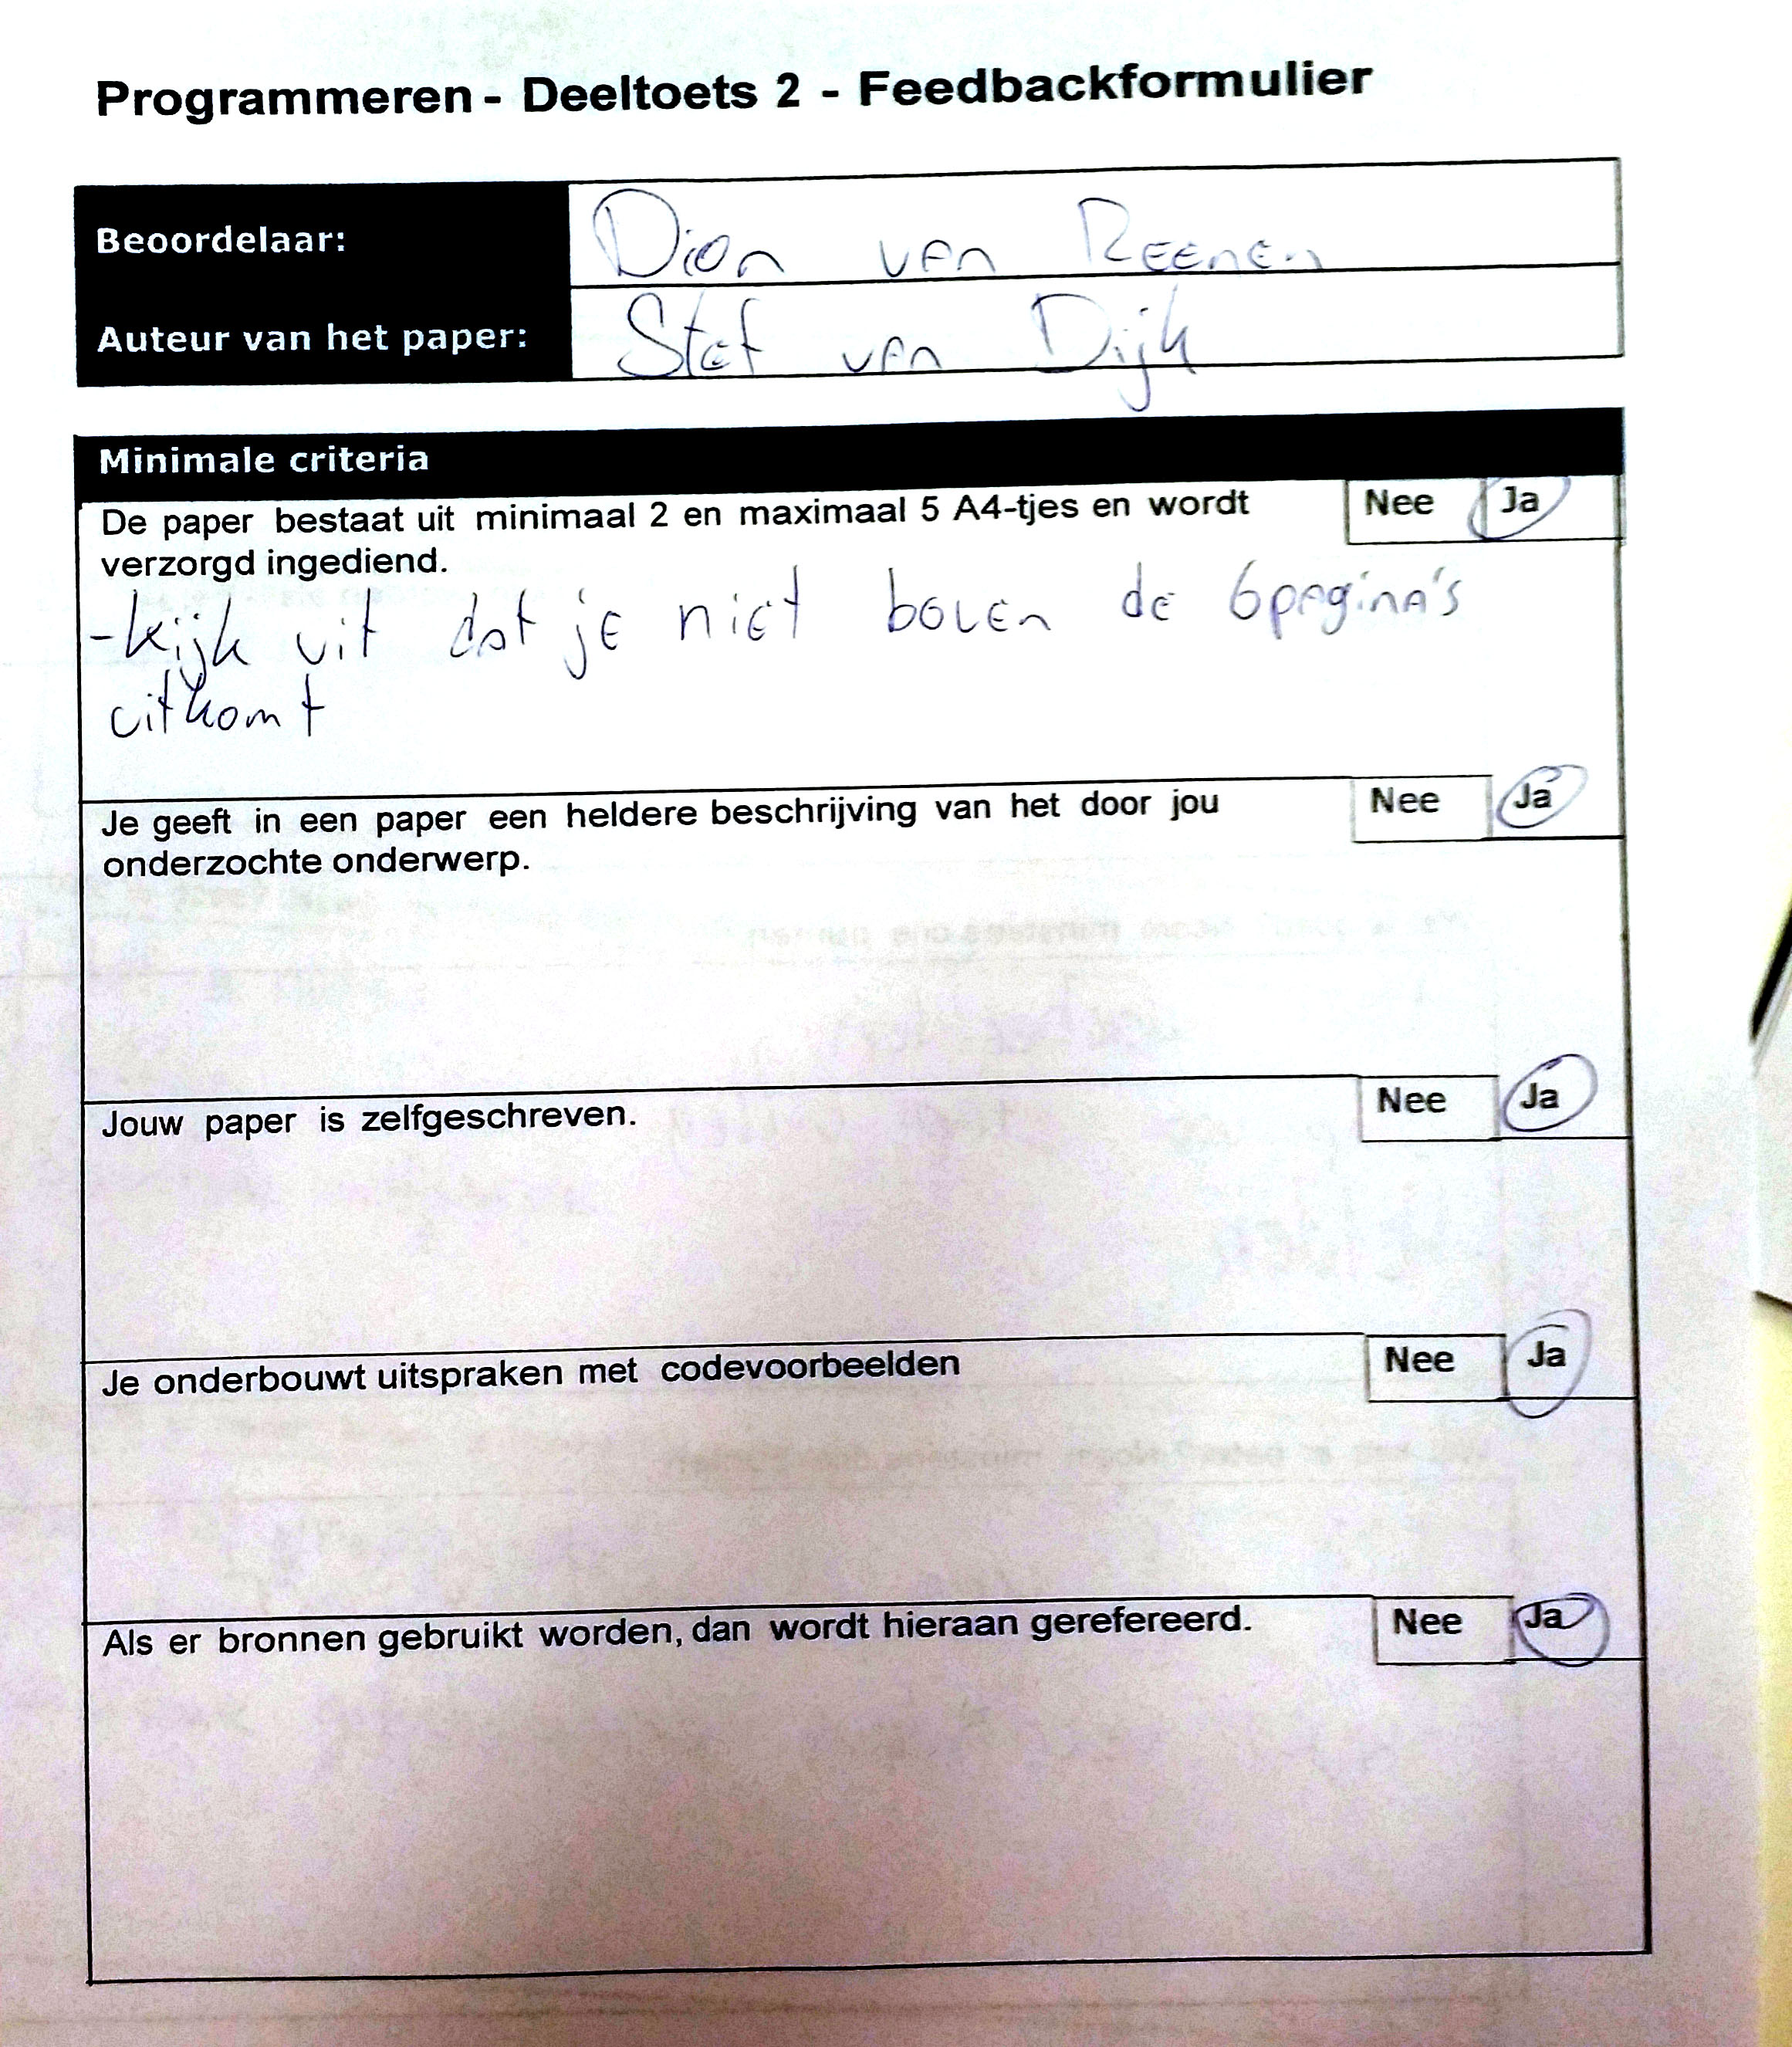 Programmeren - Deeltoets 2 - Feedbackformulier
Beoordelaar: Dion van Reenen
Auteur van het paper: Stef van Dijk
Minimale criteria
De paper bestaat uit minimaal 2 en maximaal 5 A4-tjes en wordt Nee Ja
verzorgd ingediend.
-kijk uit dat je niet boven de 6 pagina's
uitkomt
Je geeft in een paper een heldere beschrijving van het door jou Nee Ja
onderzochte onderwerp.
Jouw paper is zelfgeschreven. Nee Ja
Je onderbouwt uitspraken met codevoorbeelden Nee Ja
Als er bronnen gebruikt worden, dan wordt hieraan gerefereerd. Nee Ja